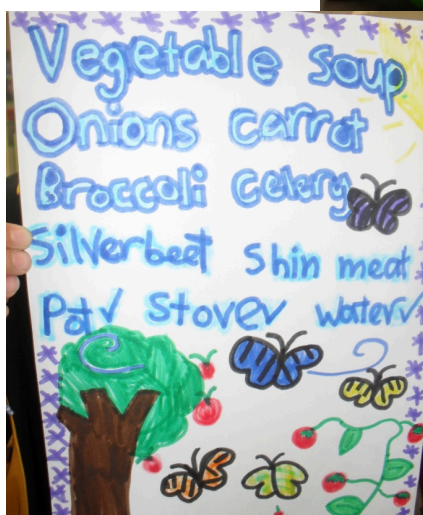 Vegetable soup
Onions carrot
Broccoli Celery
Silverbeet Shin meat
Pot✓ Stove✓ water✓